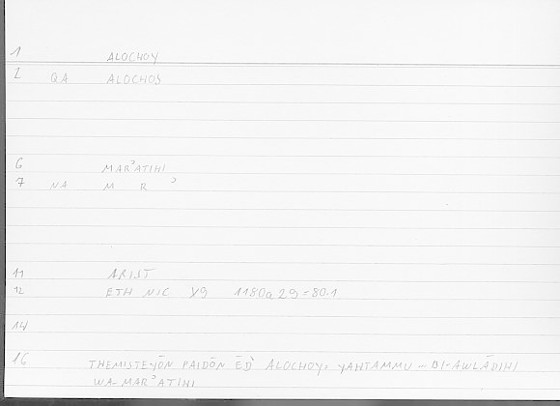 1 ALOCHOY
2 QA ALOCHOS
6 MARʾATIHI
7 NA M R ʾ
11 ARIST
12 ETH NIC X9 1180a29=80.1
14
16 THEMISTEYŌN PAIDŌN ĒD' ALOCHOY, YAHTAMMU - BI-AWLĀDIHI
WA-MARʾATIHI